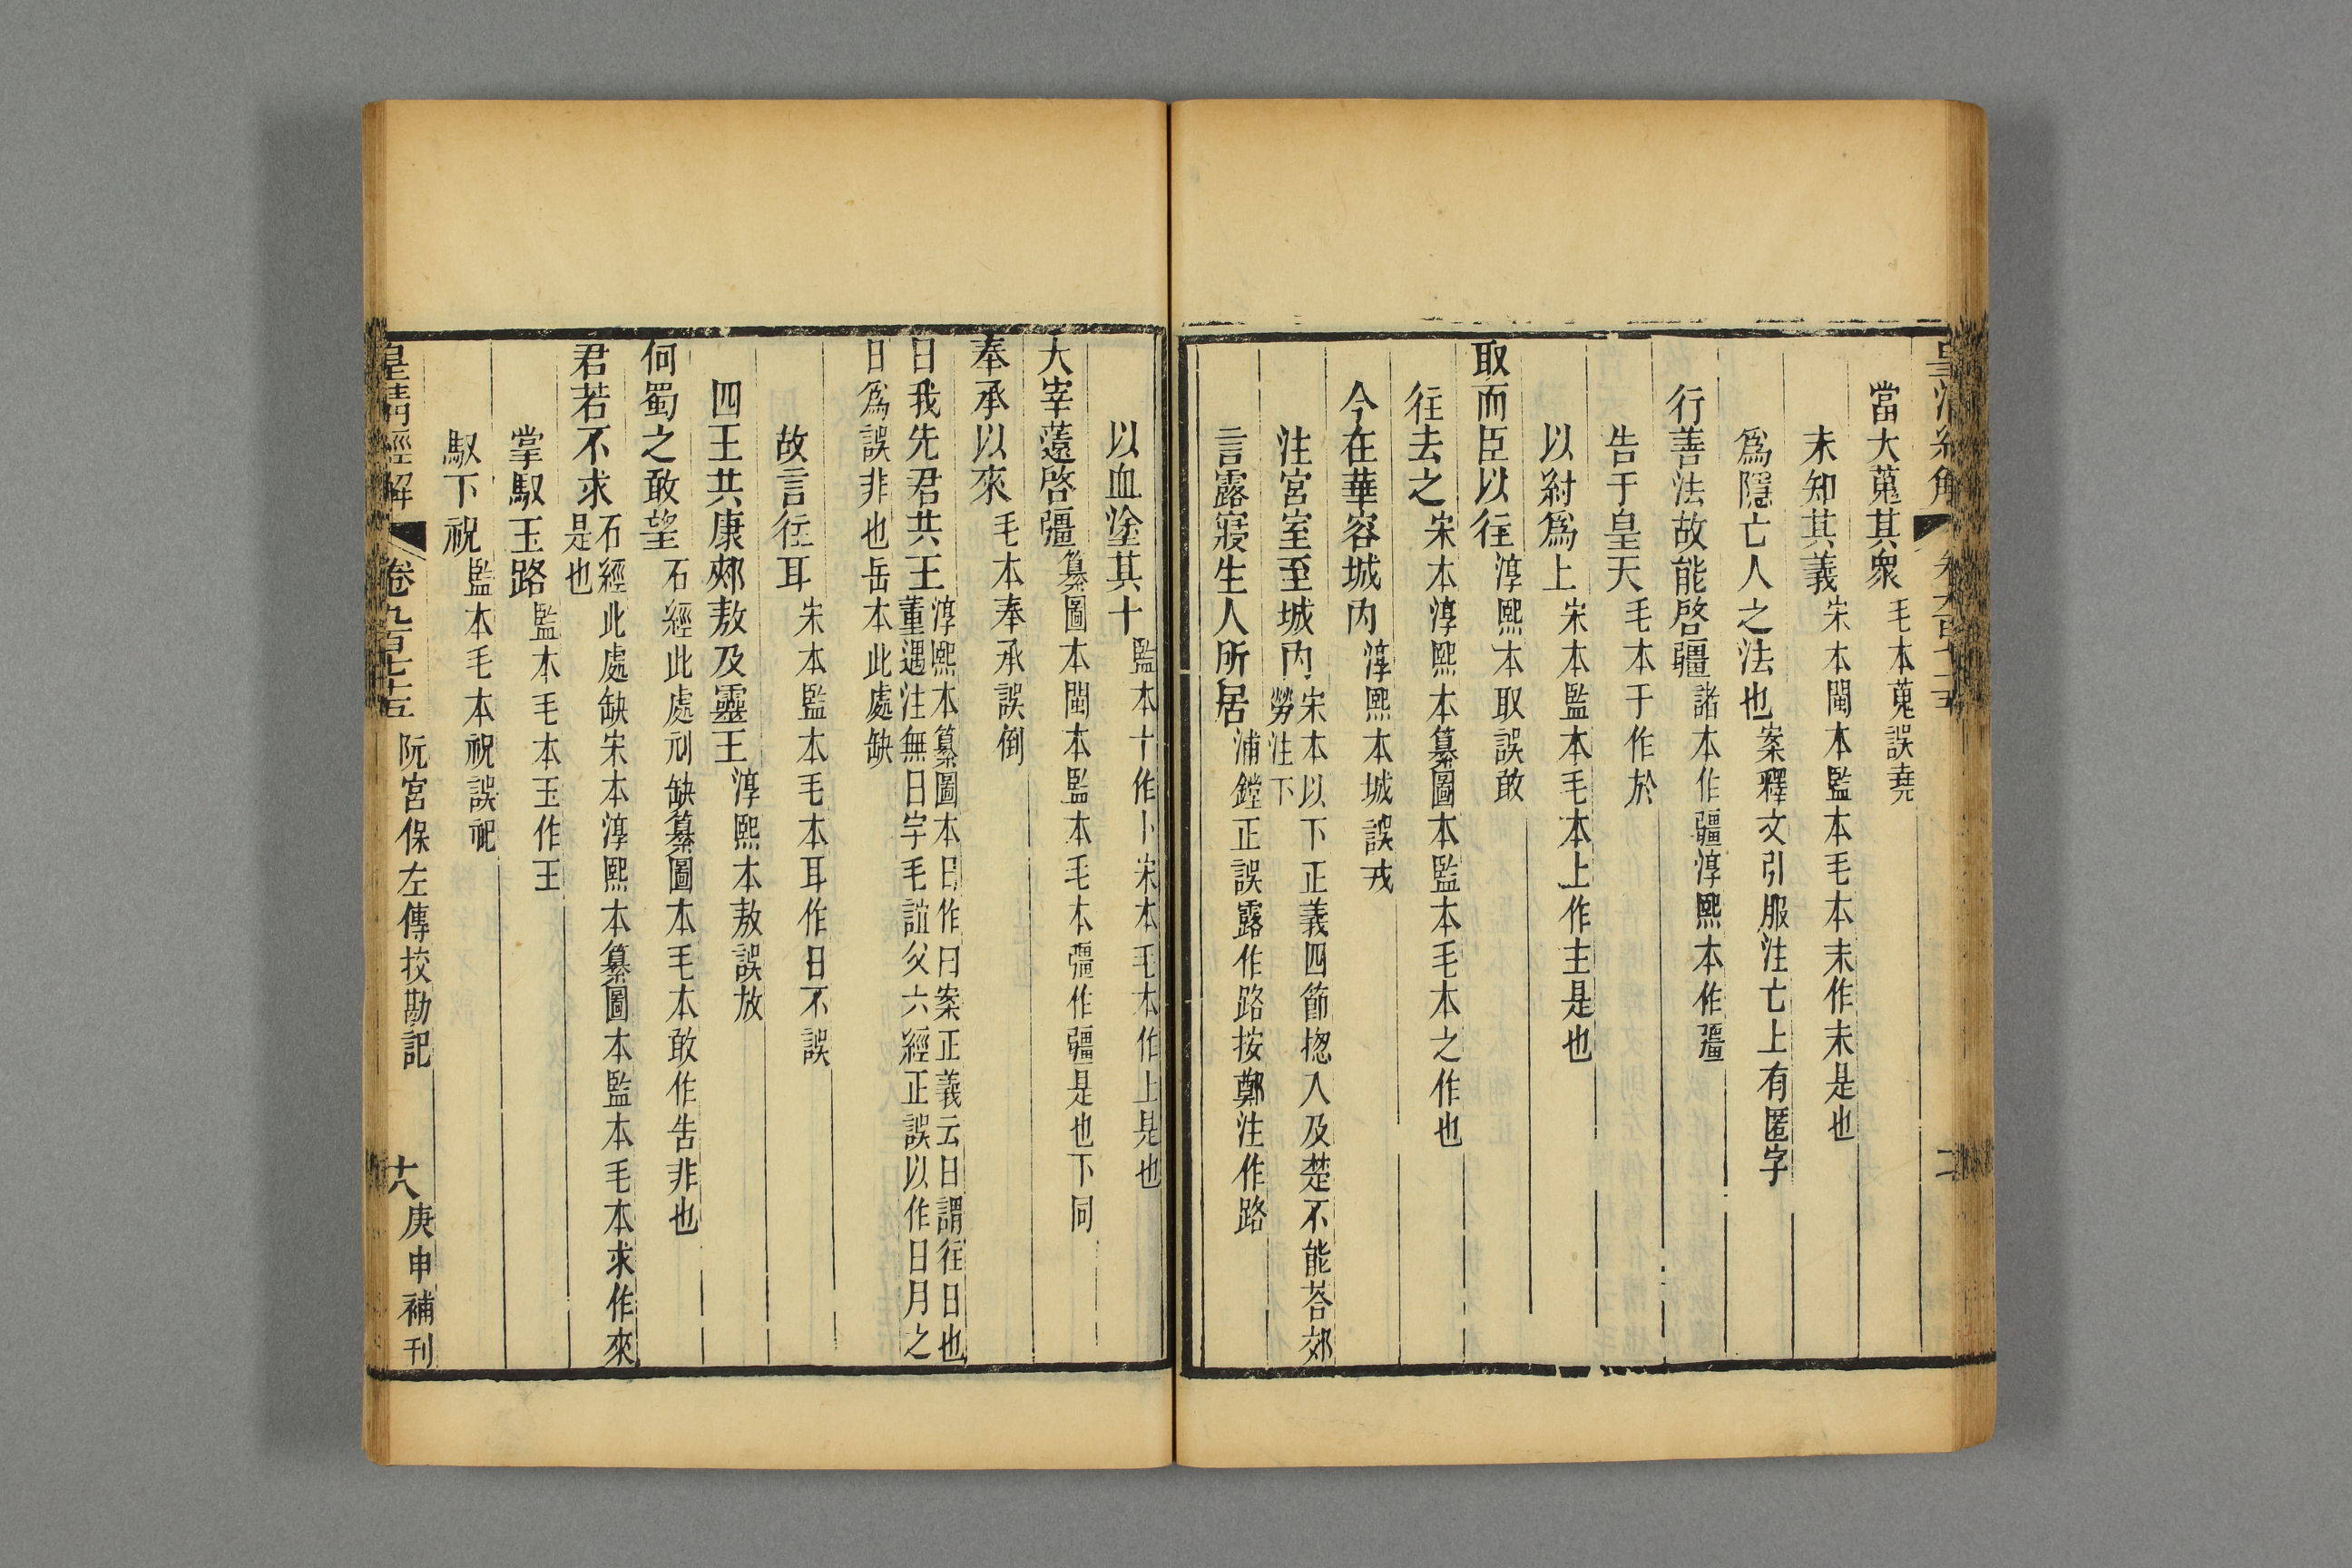 當大蒐其衆毛本蒐誤堯
末知其義宋本閩本監本毛本末作未是也
爲隱亡人之法也案釋文引服注亡上有匿字
行善法故能啓疆諸本作疆淳熙本作彊
告于皇天毛本于作於
以紂爲上宋本監本毛本上作主是也
取而臣以往淳熙本取誤敢
往去之宋本淳熙本纂圖本監本毛本之作也
今在華容城內淳熙本城誤戎
注宮室至城內宋本以下正義四節揔入及楚不能荅郊
勞注下
言露寢生人所居浦鏜正誤露作路按鄭注作路
以血塗其十監本十作卜宋本毛本作上是也
大宰薳啓彊纂圖本閩本監本毛本彊作疆是也下同
奉承以來毛本奉承誤倒
日我先君共王淳熙本纂圖本日作曰案正義云日謂往日也
董遇注無日字毛誼父六經正誤以作日月之
日爲誤非也岳本此處缺
故言往耳宋本監本毛本耳作日不誤
四王共康郟敖及靈王淳熙本敖誤放
何蜀之敢望石經此處刓缺纂圖本毛本敢作告非也
君若不求石經此處缺宋本淳熙本纂圖本監本毛本求作來
是也
掌馭玉路監本毛本玉作王
馭下祝監本毛本祝誤祀
皇清經解 卷九百七十五 阮宮保左傳挍勘記 十八 庚申補刊